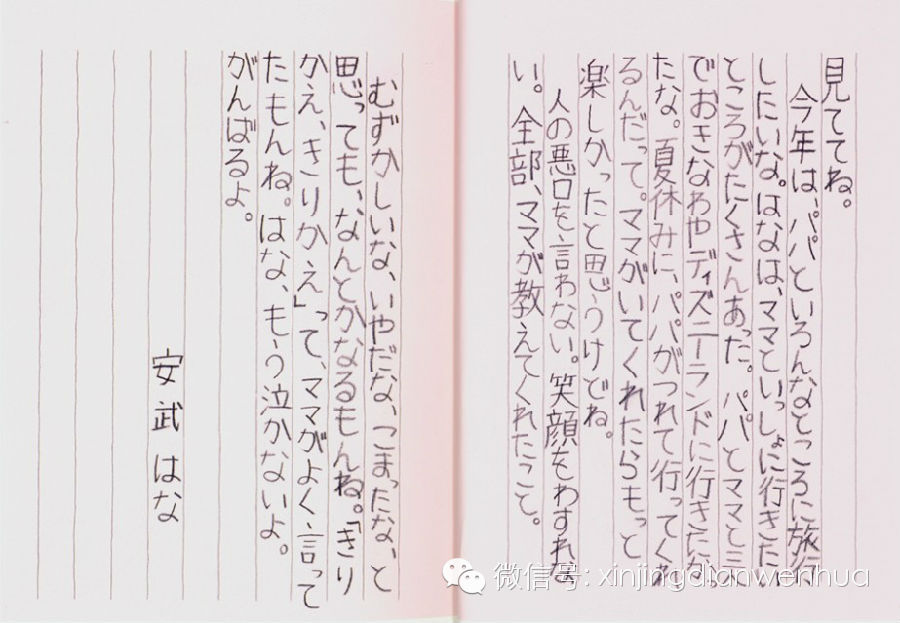 見ててね。
今年は、パパといろんなところに旅行
したいな。はなは、ママといっしょに行きたい
ところがたくさんあった。パパとママと三
でおきなわやディズニーランドに行きたか
たな。夏休みに、パパがつれて行ってくれ
るんだって。ママがいてくれたらもっと
楽しかったと思うけどね。
人の悪口を言わない。笑顔をわすれな
い。全部、ママが教えてくれたこと。
むずかしいな、いやだな、こまったな、と
思っても、なんとかなるもんね。「きり
かえ、きりかえ」って、ママがよく言って
たもんね。はな、もう泣かないよ。
がんばるよ。
安武 はな
微信号: xinjingdianwenhua